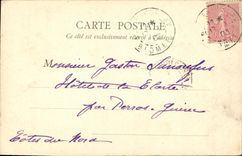 CARTE POSTALE
Ce côté est exclusivement réservé à l'adresse
Monsieur Gaston
Hôtel de la Clarté
par Perros-Guirec
Côtes du Nord